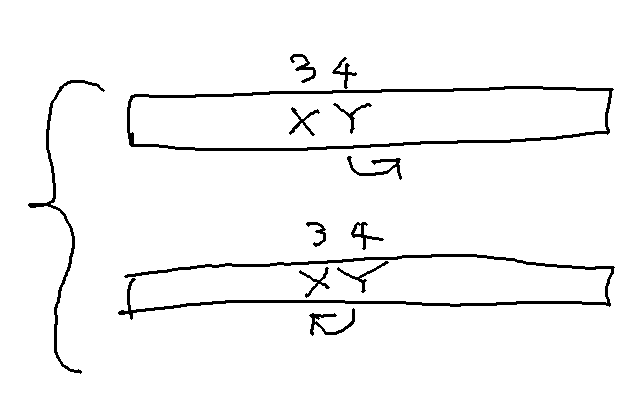 3 4
X Y
3 4
X Y